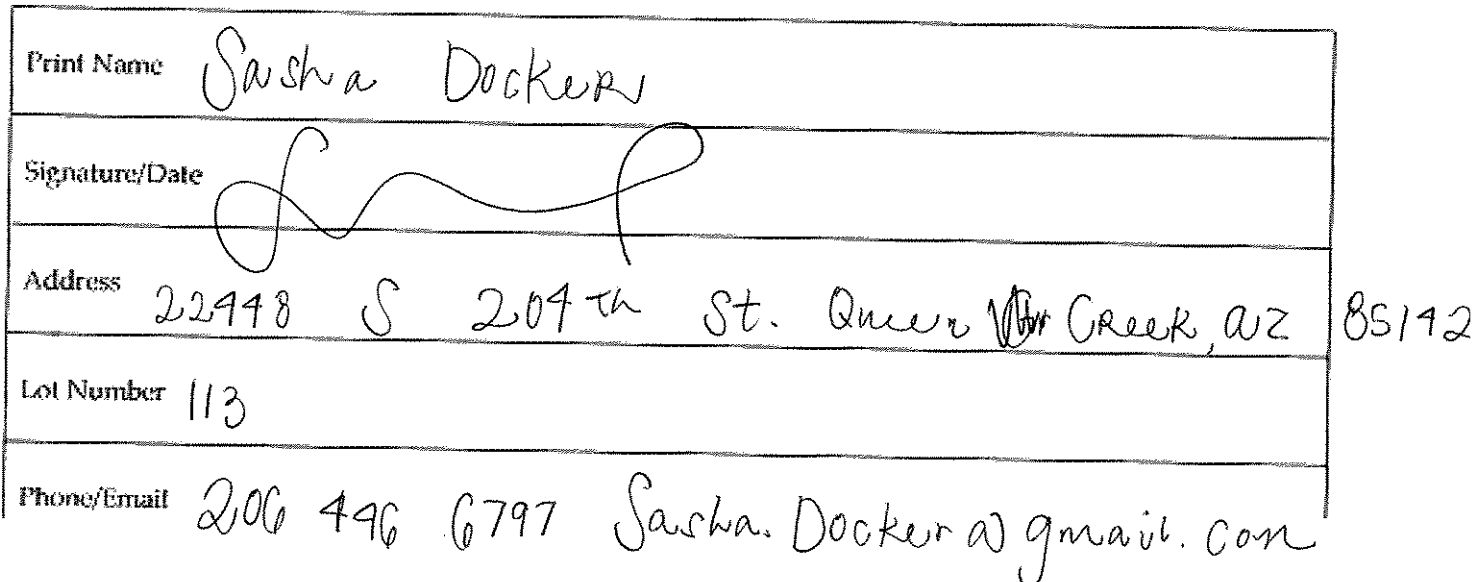 Print Name Sasha Docker
Signature/Date
Address 22448 S 204th St. Queen Creek, az 85142
Lot Number 113
Phone/Email 206 446 6797 Sasha.Docker@gmail.com